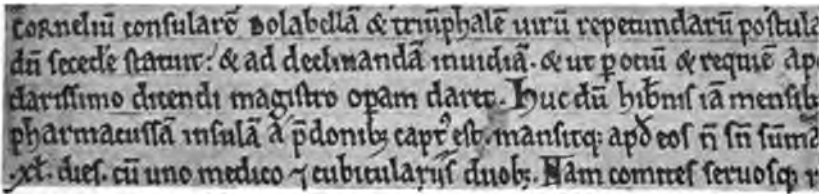 cornelíu᷃ consularē Dolabellā & triūphalē uirū repetundarū postula
dū secede᷃ statuit: & ad declinandā inuidiā. & ut p otiū & requiē apo
clarissimo dicendi magistro opam daret. Huc dū hib̄nis iā mensib
pharmacussā insulā a p̄donib; capt᷒ est. mansitq; apđ eos n̄ sn̄ sūma
.xl. dies. cū uno medico ⁊ cubicularijs duob;. Nam comites seruosq; r